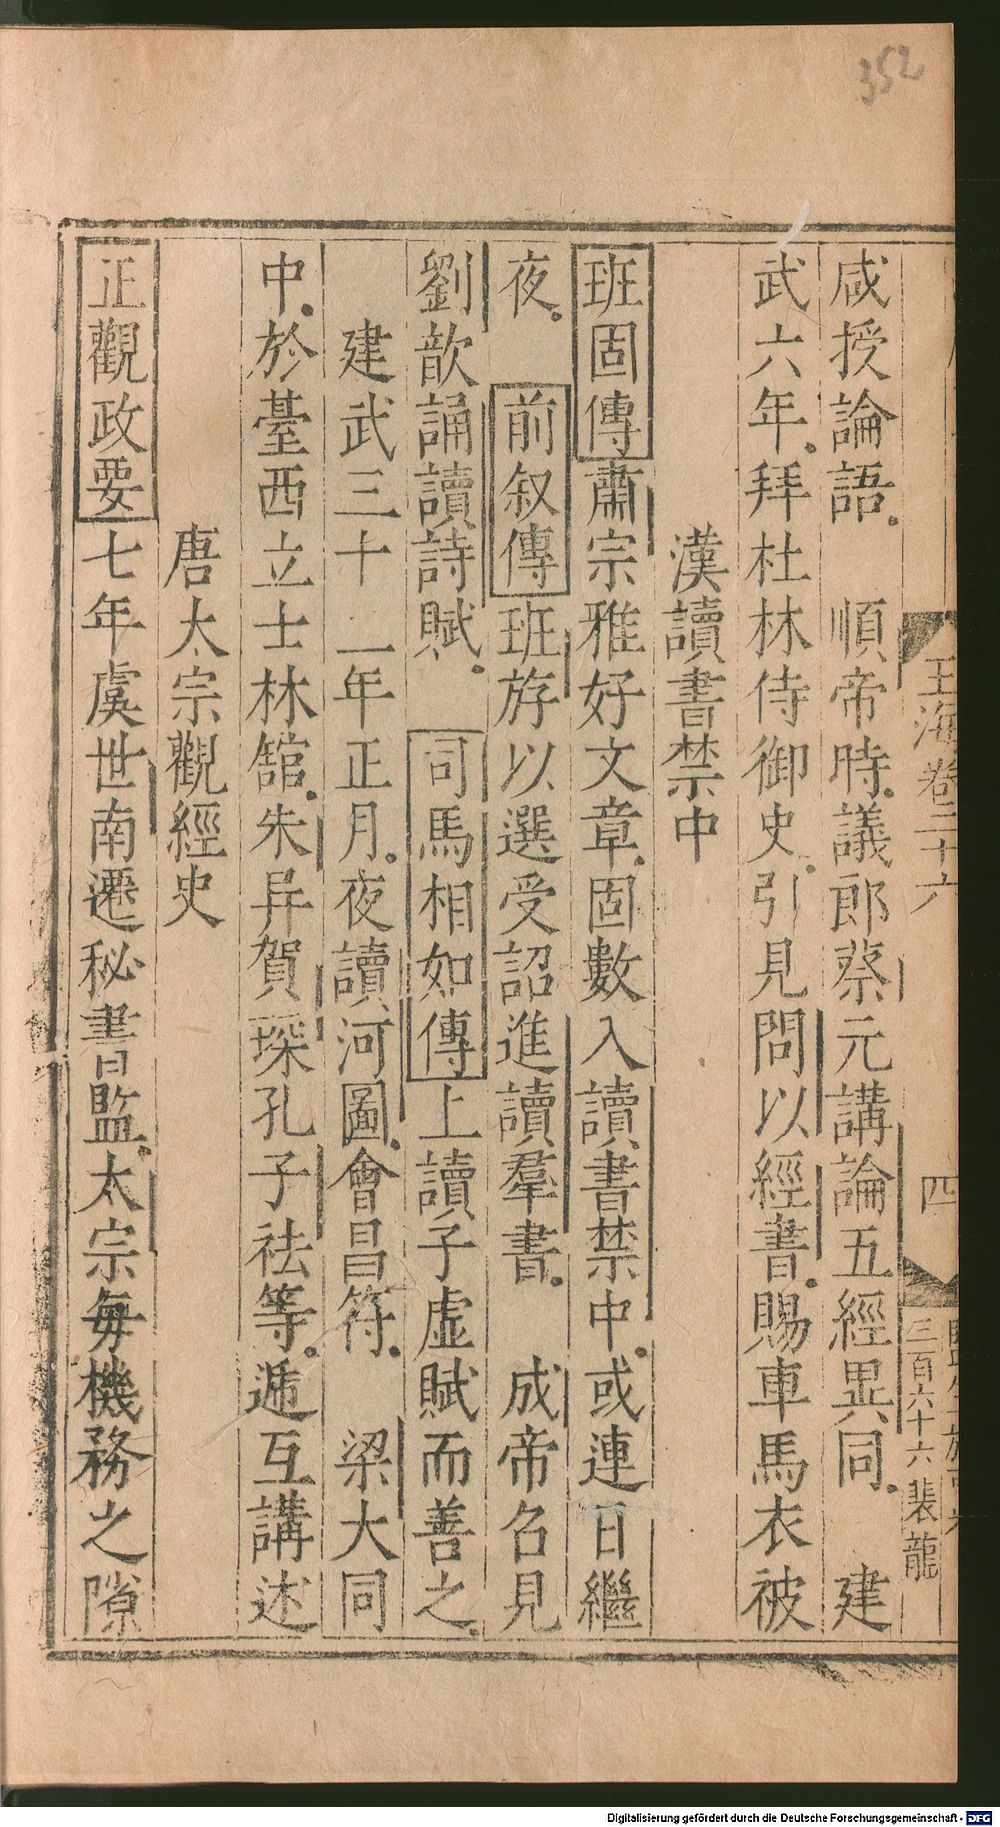 352
玉海卷二十六
四
三百六十六 裴龍
咸授論語 順帝時議郎蔡元講論五經異同 建
武六年拜杜林侍御史引見問以經書賜車馬衣被
漢讀書禁中
班固傳肅宗雅好文章固數入讀書禁中或連日繼
夜 前叙傳班斿以選受詔進讀羣書 成帝召見
劉歆誦讀詩賦 司馬相如傳上讀子虛賦而善之
建武三十二年正月夜讀河圖會昌符 梁大同
中於臺西立士林館朱异賀琛孔子祛等遞互講述
唐太宗觀經史
正觀政要七年虞世南遷秘書監太宗每機務之隙
Digitalisierung gefördert durch die Deutsche Forschungsgemeinschaft - DFG